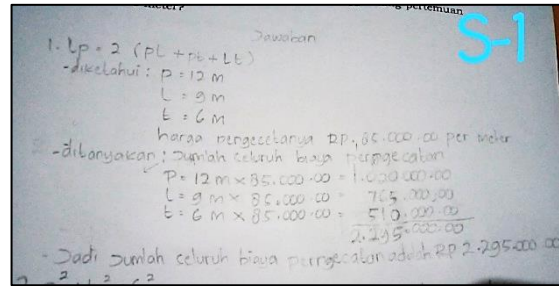 meter?
pertemuan
S-1
Jawaban
1. Lp = 2 (pL + pt + Lt)
- diketahui : p = 12 m
L = 9 m
t = 6 m
harga pengecetanya RP. 85.000.00 per meter
- ditanyakan : Jumlah celuruh biaya perngecatan
P = 12 m x 85.000.00 = 1.020.000.00
L = 9 m x 85.000.00 = 765.000.00
t = 6 m x 85.000.00 = 510.000.00
2.295.000.00
- Jadi Jumlah celuruh biaya perngecatan adalah RP 2.295.000.00